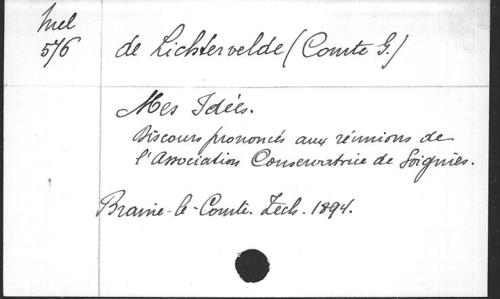 Mel
576
de Lichtervelde (Comte G.)
Mes Idées.
Discours prononcés aux réunions de
l'Association Conservatrice de Soignies.
Braine-le-Comte. Zech. 1894.